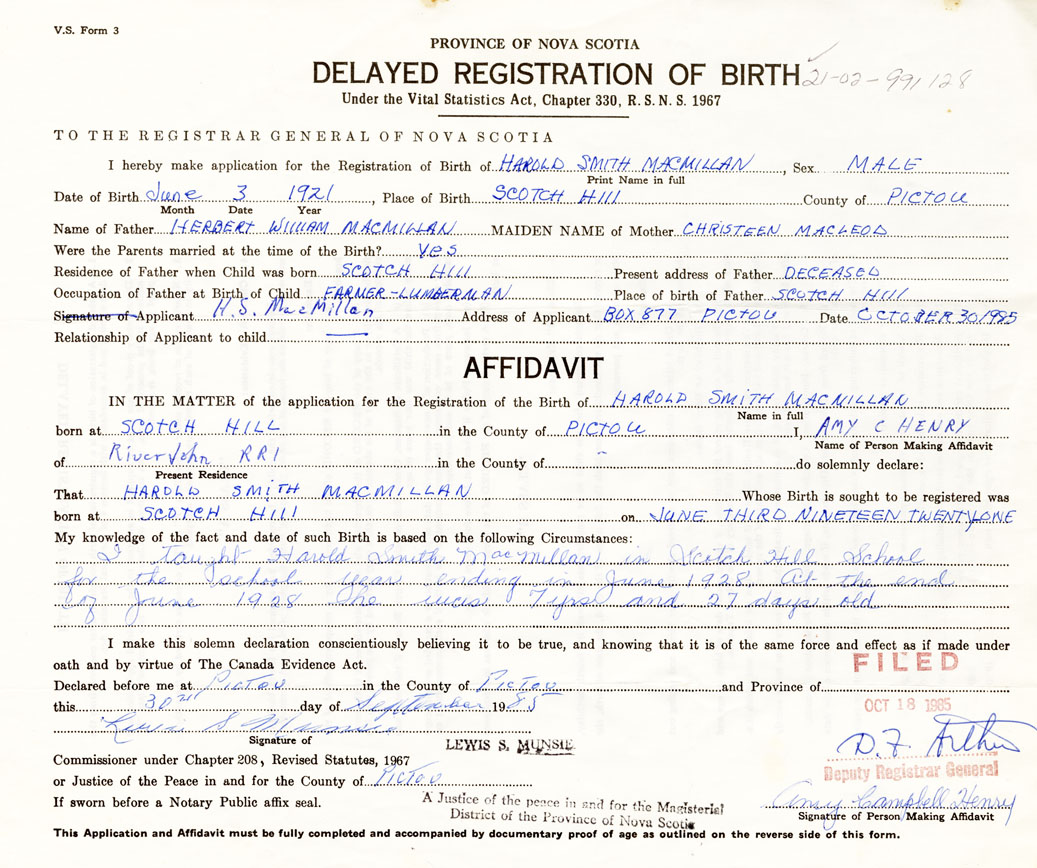 V.S. Form 3
PROVINCE OF NOVA SCOTIA
DELAYED REGISTRATION OF BIRTH 21-02-991128
Under the Vital Statistics Act, Chapter 330, R. S. N. S. 1967
TO THE REGISTRAR GENERAL OF NOVA SCOTIA
I hereby make application for the Registration of Birth of HAROLD SMITH MACMILLAN, Sex MALE
Print Name in full
Date of Birth June 3 1921, Place of Birth SCOTCH Hill County of PICTOU
Month Date Year
Name of Father HERBERT WILLIAM MACMILLAN MAIDEN NAME of Mother CHRISTEEN MACLEOD
Were the Parents married at the time of the Birth? Yes
Residence of Father when Child was born SCOTCH Hill Present address of Father DECEASED
Occupation of Father at Birth of Child FARMER-LUMBERMAN Place of birth of Father SCOTCH Hill
Signature of Applicant H.S. MacMillan Address of Applicant BOX 877 PICTOU Date OCTOBER 30/1985
Relationship of Applicant to child
AFFIDAVIT
IN THE MATTER of the application for the Registration of the Birth of HAROLD SMITH MACMILLAN
Name in full
born at SCOTCH HILL in the County of PICTOU I, AMY C HENRY
Name of Person Making Affidavit
of River John RR1 in the County of do solemnly declare:
Present Residence
That HAROLD SMITH MACMILLAN Whose Birth is sought to be registered was
born at SCOTCH Hill on JUNE THIRD NINETEEN TWENTY ONE
My knowledge of the fact and date of such Birth is based on the following Circumstances:
I taught Harold Smith MacMillan in Scotch Hill School
for the school year ending in June 1928 At the end
of June 1928 he was 7yrs and 27 days old
I make this solemn declaration conscientiously believing it to be true, and knowing that it is of the same force and effect as if made under
oath and by virtue of The Canada Evidence Act.
FILED
Declared before me at Pictou in the County of Pictou and Province of
this 30th day of September 1985
OCT 18 1985
Lewis S Munsie
Signature of
LEWIS S. MUNSIE
D.F. Arthur
Commissioner under Chapter 208, Revised Statutes, 1967
Deputy Registrar General
or Justice of the Peace in and for the County of Pictou
If sworn before a Notary Public affix seal.
A Justice of the peace in and for the Magisterial
District of the Province of Nova Scotia
Amy Campbell Henry
Signature of Person Making Affidavit
This Application and Affidavit must be fully completed and accompanied by documentary proof of age as outlined on the reverse side of this form.